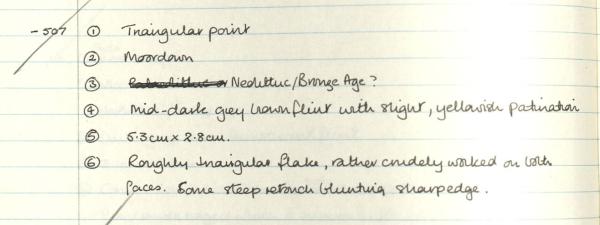 -507 ① Triangular point
② Moordown
③ Neolithic/Bronze Age?
④ Mid-dark grey brown flint with slight, yellowish patination
⑤ 5.3cm x 2.8cm.
⑥ Roughly triangular flake, rather crudely worked on both
faces. Some steep retouch blunting sharp edge.